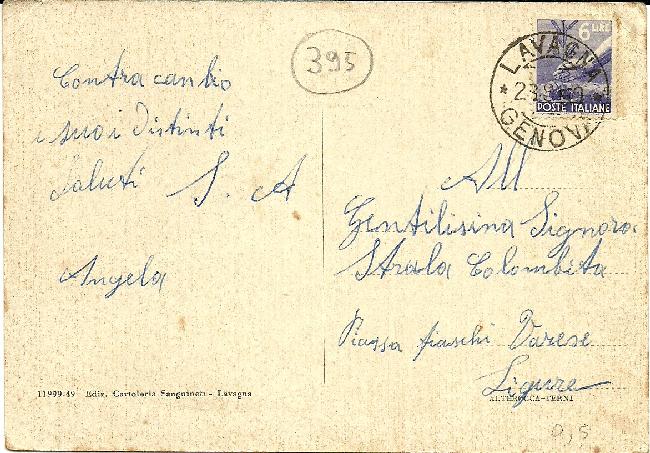 395
6 LIRE
LAVAGNA
GENOVA
POSTE ITALIANE
Contra canbio
i suoi distinti
Saluti S. A
Angela
All
Gentilisina Signora
Strala Colombita
Piassa fiaschi Varese
Ligure
11999-49 Ediz. Cartoleria Sanguineti - Lavagna
ALTEROCCA-TERNI
0,5